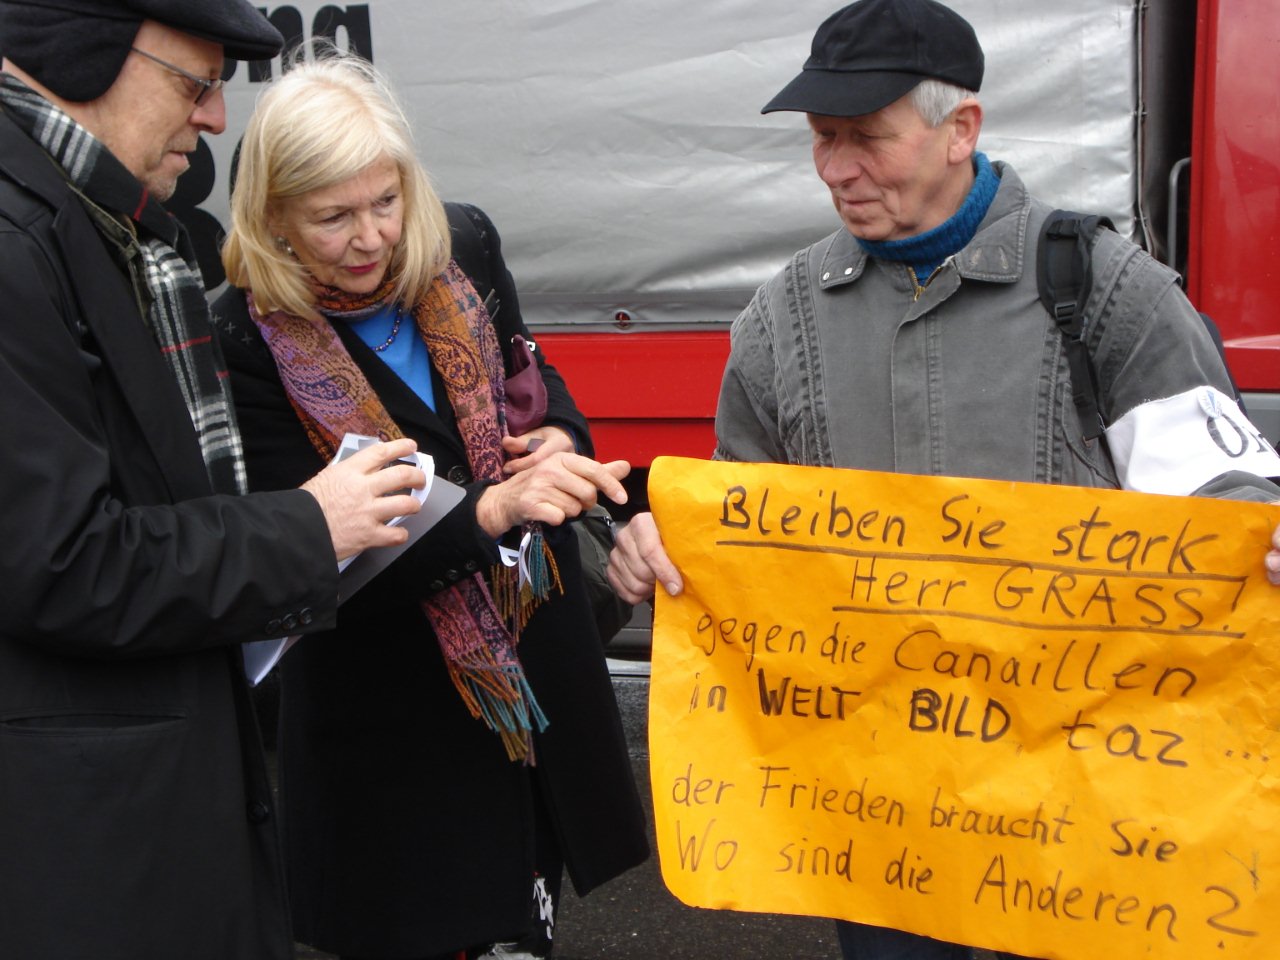 Bleiben Sie stark
Herr GRASS!
gegen die Canaillen
in WELT, BILD, taz ...
der Frieden braucht Sie
Wo sind die Anderen?